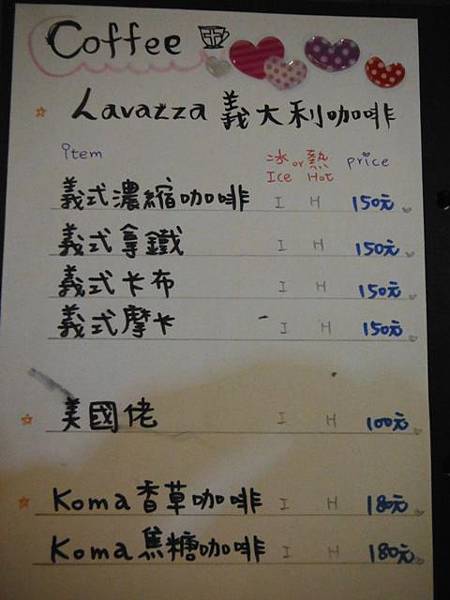 Coffee
☆ Lavazza 義大利咖啡
item 冰or熱 price
Ice Hot
義式濃縮咖啡 I H 150元
義式拿鐵 I H 150元
義式卡布 I H 150元
義式摩卡 I H 150元
☆ 美國佬 I H 100元
☆ Koma香草咖啡 I H 180元
Koma焦糖咖啡 I H 180元